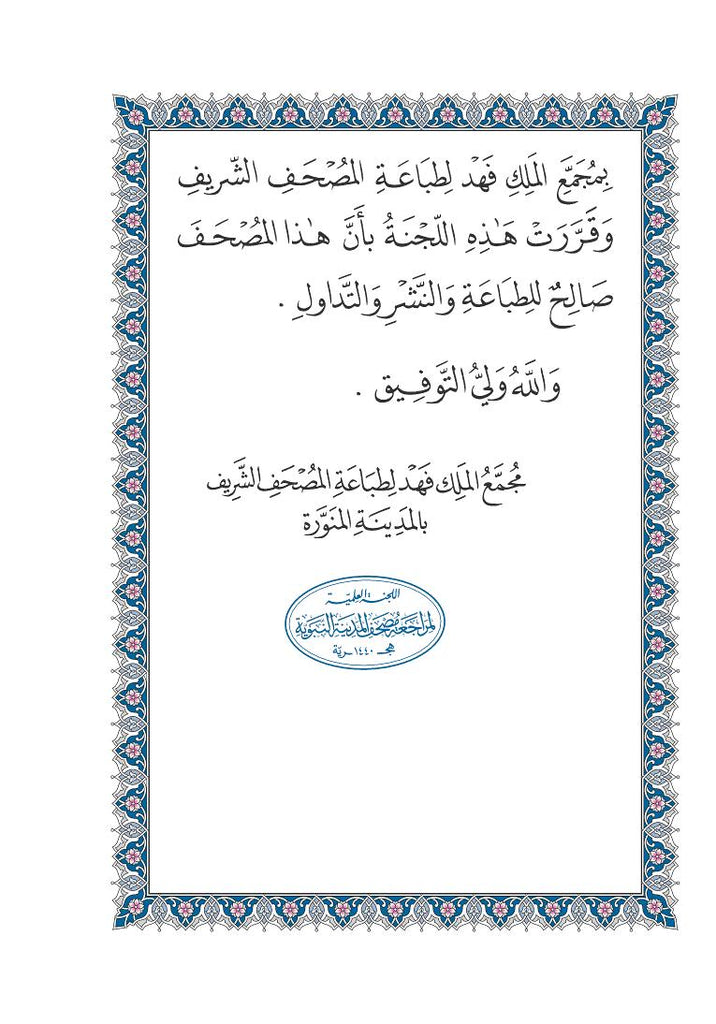 بِمُجَمَّعِ المَلِكِ فَهْد لِطِبَاعَةِ المُصْحَفِ الشَّرِيفِ
وَقَرَّرَتْ هَٰذِهِ اللَّجْنَةُ بأَنَّ هَٰذا المُصْحَفَ
صَالِحٌ للطِبَاعَةِ وَالنَّشْرِ وَالتَّداولِ .
وَاللَّهُ وَلِيُّ التَّوَفِيق .
مُجَمَّعُ المَلِك فَهْد لِطِبَاعَةِ المُصْحَفِ الشَّرِيف
بالمَدِينَةِ المُنَوَّرَة
اللجنة العلميّة
لمراجعة مصحف المدينة النبوية
١٤٤٠ هجـرية